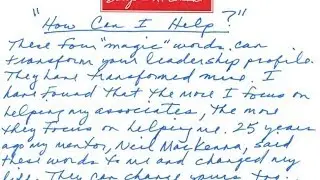 "How Can I Help?"
These four "magic" words can
transform your leadership profile.
They have transformed mine. I
have found that the more I focus on
helping my associates, the more
they focus on helping me. 25 years
ago my mentor, Neil MacKenna, said
these words to me and changed my
life. They can change yours too.